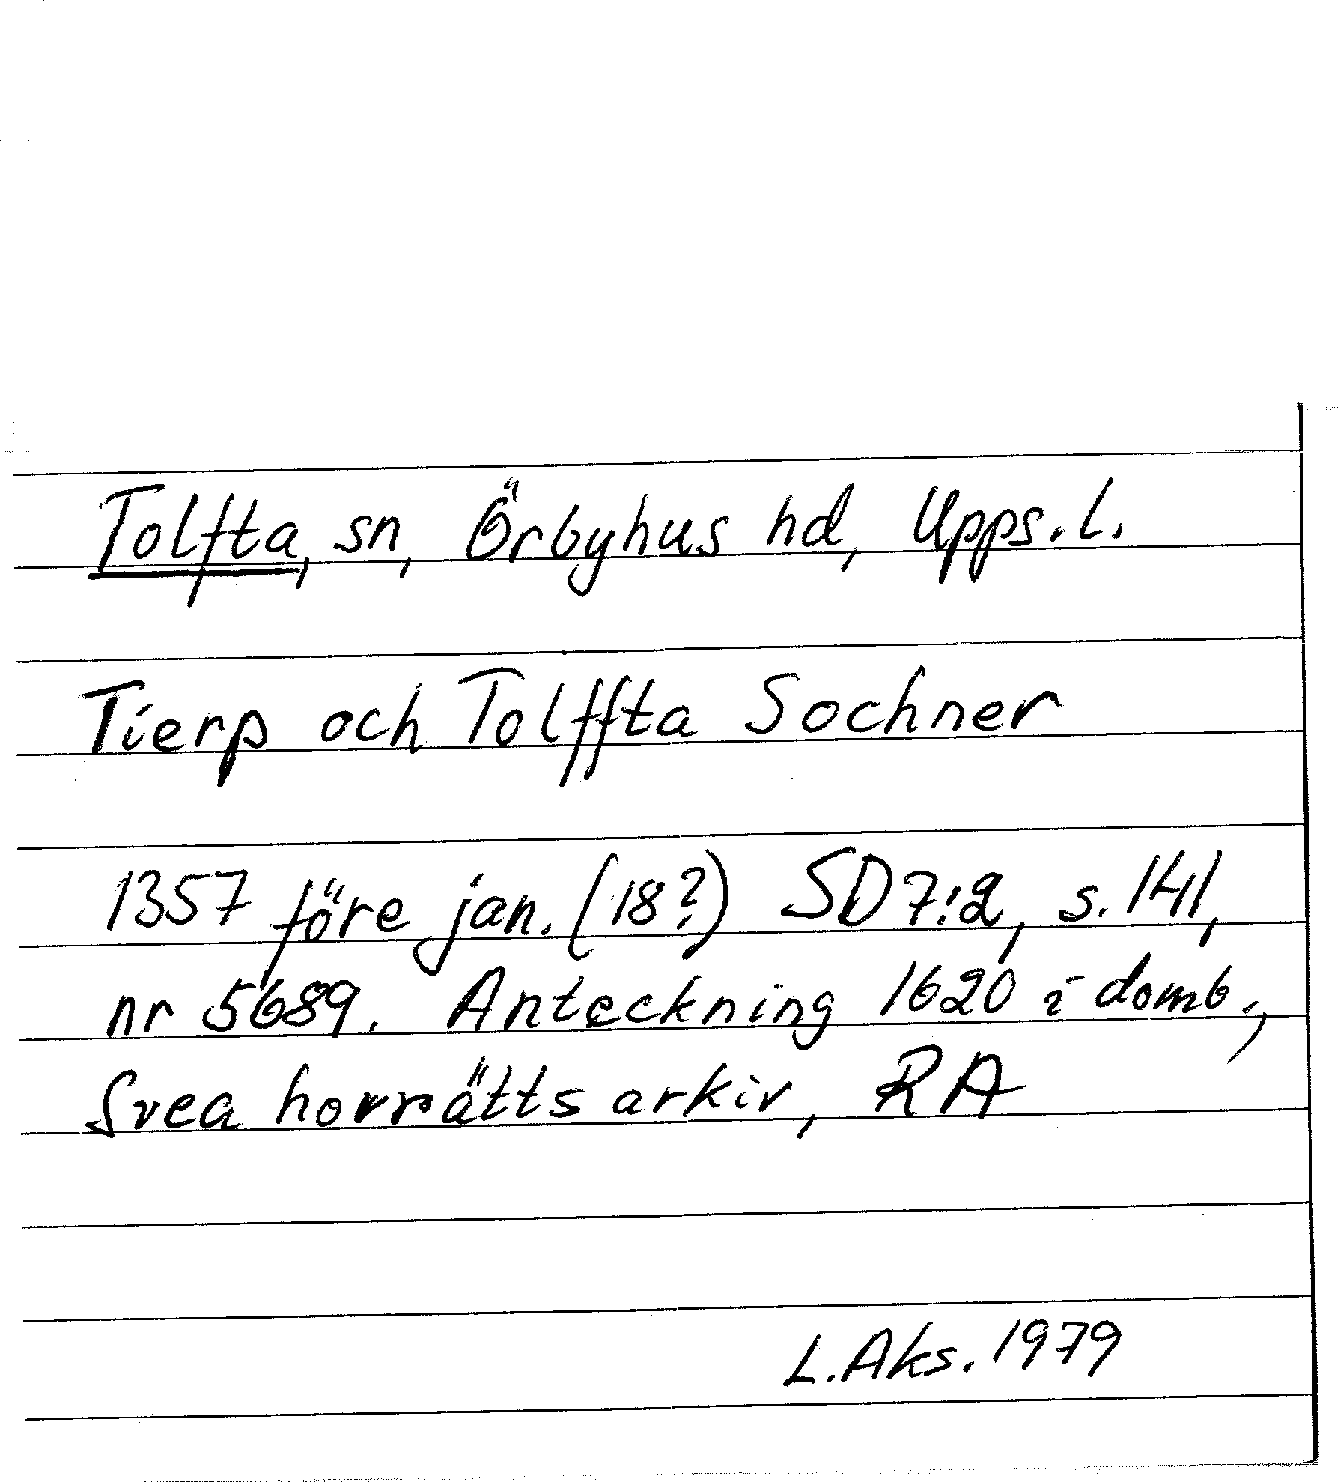 Tolfta, sn, Örbyhus hd, Upps.l.
Tierp och Tolffta Sochner
1357 före jan. (18?) SD 7:2, s. 141,
nr 5689. Anteckning 1620 i domb.,
Svea hovrätts arkiv, RA
L.Aks. 1979